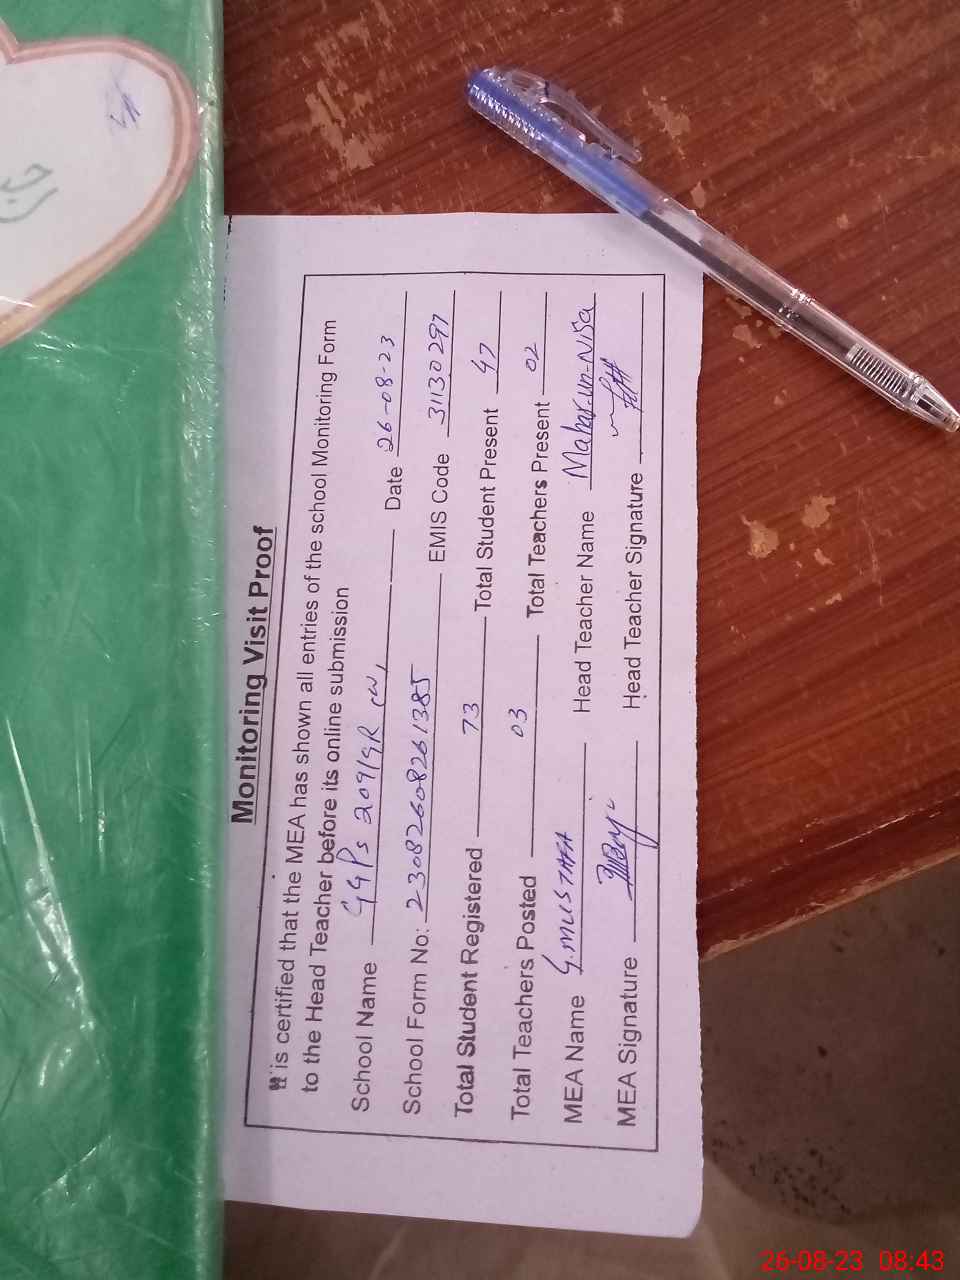 Monitoring Visit Proof
It is certified that the MEA has shown all entries of the school Monitoring Form
to the Head Teacher before its online submission
School Name GGPS 209/9R (W) Date 26-08-23
School Form No: 23082608261385 EMIS Code 31130297
Total Student Registered 73 Total Student Present 47
Total Teachers Posted 03 Total Teachers Present 02
MEA Name G.MUSTAFA Head Teacher Name Mahar-un-Nisa
MEA Signature Head Teacher Signature
26-08-23 08:43